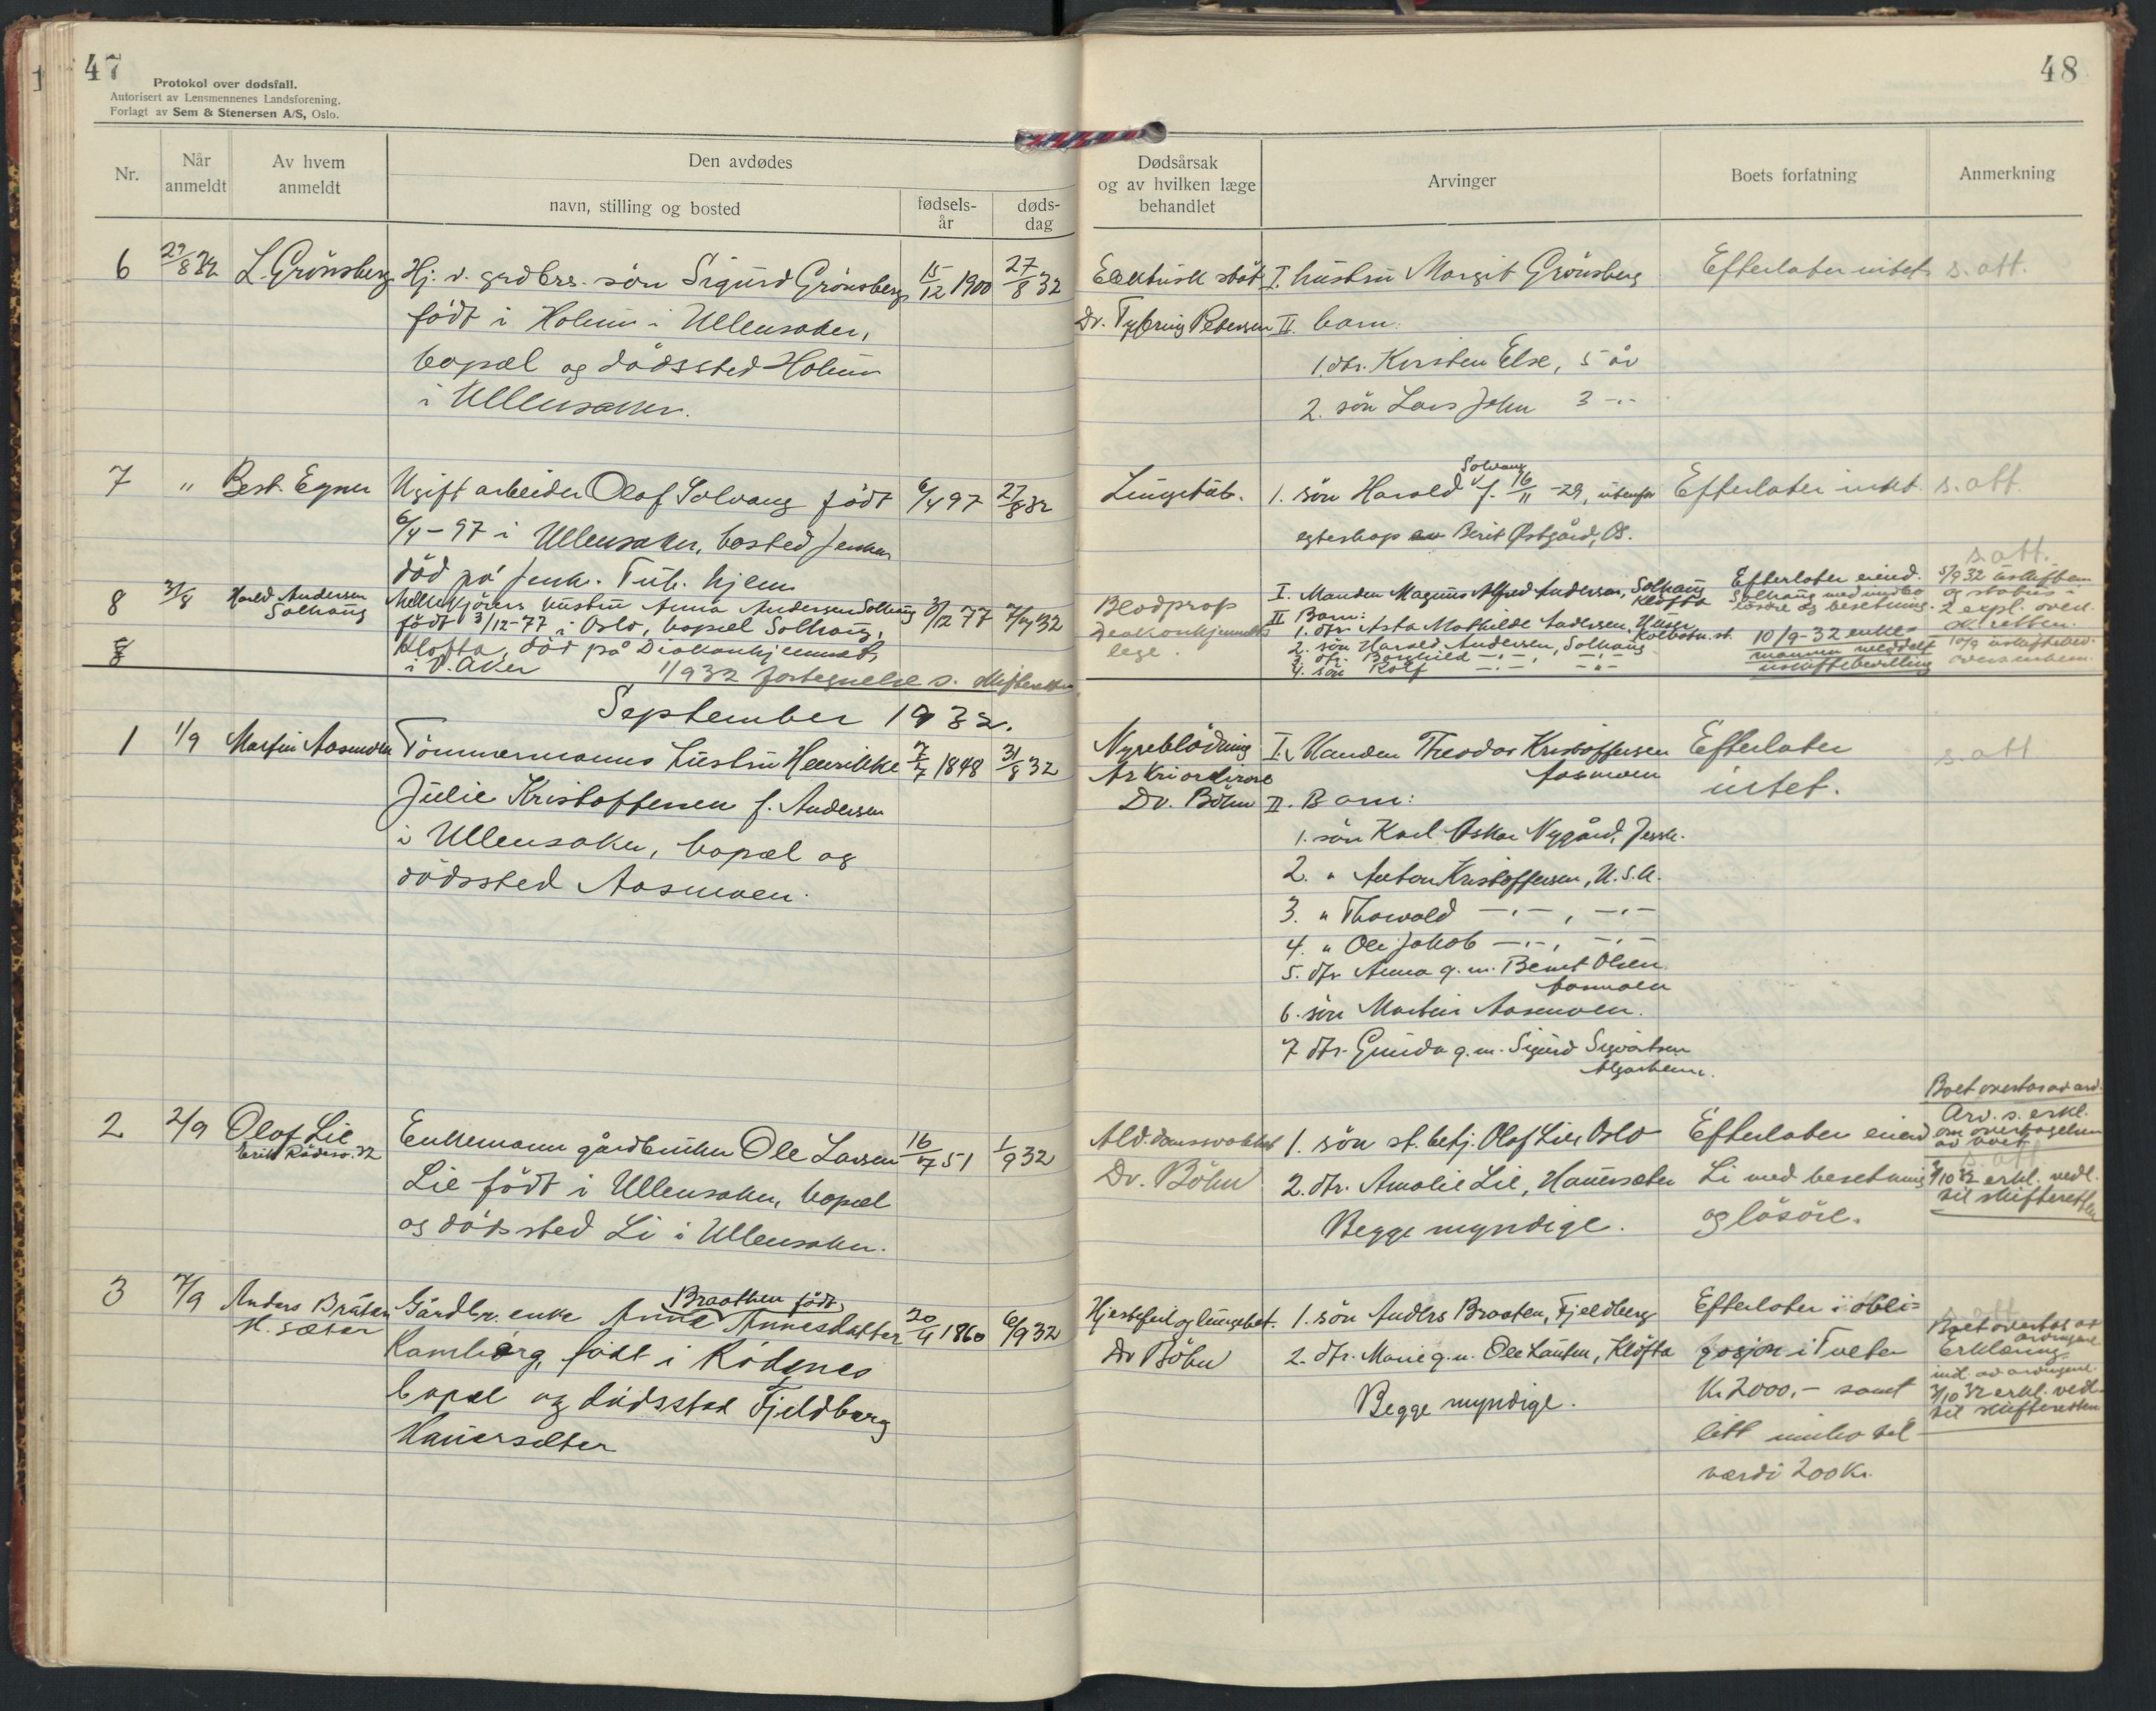 47
Protokol over dødsfall.
Autorisert av Lensmennenes Landsforening.
Forlagt av Sem & Stenersen A/S, Oslo.
Nr.
Når anmeldt
Av hvem anmeldt
Den avdødes
navn, stilling og bosted
fødsels-år
døds-dag
6 29/8 32 L. Grönsberg Hj. v. grdbrs. sön Sigurd Grönsberg 15/12 1900 27/8 32
födt i Holum i Ullensaker,
bopæl og dödssted Holum
i Ullensaker.
7 " Best. Egner Ugift arbeider Olaf Solvang födt 6/4 97 27/8 32
6/4-97 i Ullensaker, bosted Jessh.
död på Jessh. Tub. hjem
8 31/8 Harald Andersen Solhaug
hustru Anna Andersen Solhaug 3/12 77 32
födt 3/12-77 i Oslo, bopæl Solhaug,
Kløfta, död på Diakonhjemmet,
i V. Aker 1/9 32 fortegnelse s. skifteretten
8/8
September 1932.
1 1/9 Martin Aasmoen Tömmermanns hustru Henrikke 7/7 1848 31/8 32
Julie Kristoffersen f. Andersen
i Ullensaker, bopæl og
dödssted Aasmoen.
2 2/9 Olaf Lie Enkemann gårdbruker Ole Larsen 16/7 51 1/9 32
Lie födt i Ullensaker, bopæl
og dödssted Li i Ullensaker.
3 7/9 Anders Bråten Gårdbr. enke Anna Braathen födt Annesdatter 20/4 1860 6/9 32
H. sæter
Kamborg, födt i Rödenes
bopæl og dödssted Fjeldberg
Hauersæter
48
Dødsårsak og av hvilken læge behandlet
Arvinger
Boets forfatning
Anmerkning
Elektrisk stöt I. hustru Margit Grönsberg Efterlater intet s. att.
Dr. Tybring Petersen II. barn:
1. dtr. Kirsten Else, 5 år
2. sön Lars John 3 -"-
Lungetub. 1. sön Harald Solvang f. 16/11-29, utenfor Efterlater intet. s. att.
egteskap av Berit Østgård, Os.
s. att.
Blodprop I. Manden Magnus Alfred Andersen, Solhaug Kløfta Efterlater eiend. Solhaug med innbo løsøre og besetning.
Diakonhjemmets lege.
II Barn:
1. dtr. Asta Mathilde Andersen, Kolbotn st.
2. sön Harald Andersen, Solhaug
3. dtr. Borghild -"-, -"-
4. sön Rolf -"- -"-
10/9-32 enke-
mannen meddelt
uskiftebevilling
Nyreblödning I. Manden Theodor Kristoffersen Aasmoen Efterlater s. att
Dr. Böhm II. Barn: intet.
1. sön Karl Oskar Nygård, Jessh.
2. " Anton Kristoffersen, U.S.A.
3. " Thorvald -"-, -"-
4. " Ole Jakob -"-, -"-
5. dtr. Anna g. m. Bernt Olsen Aasmoen
6. sön Martin Aasmoen.
7 dtr. Gunda g. m. Sigurd Sigvartsen Algarheim.
Ald.domssvakhet 1. sön st. betj. Olaf Lie, Oslo Efterlater eiend
Dr. Böhm 2. dtr. Amalie Lie, Hauersæter Li med besetning
Begge myndige. og lösöre.
Arv. s. erkl.
om overtagelsen
av boet
s. att
3/10 32 erkl. vedl.
til skifteretten
Hjertefeil og lungebet. 1. sön Anders Braaten, Fjeldberg Efterlater i obli=
Dr Böhm 2. dtr. Marie g. m. Ole Hauten, Klöfta gasjon i Tveter
Begge myndige. Kr 2000,- samt
litt innbo til
verdi 200 Kr.
Boet overtas av arvingene
Erklæring
3/10 32 erkl. vedl.
til skifteretten